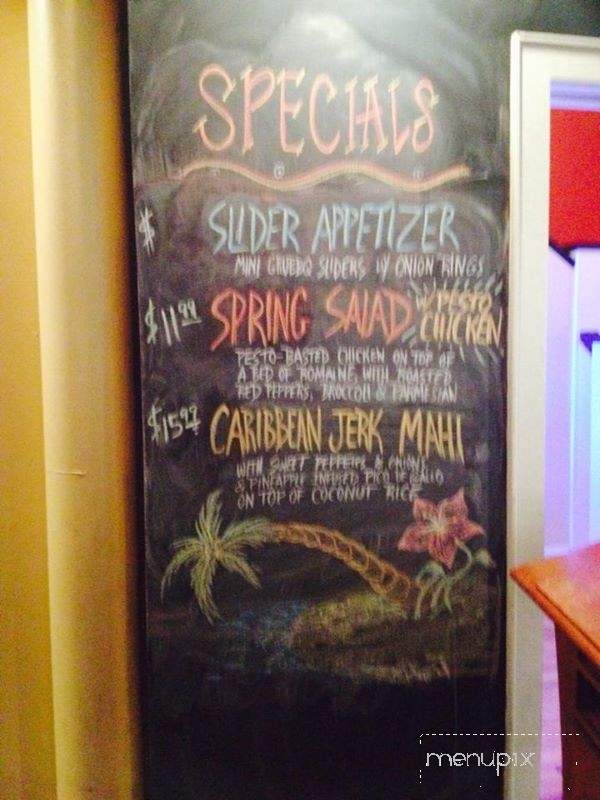 SPECIALS
$ SLIDER APPETIZER
MINI SLIDERS W/ ONION RINGS
$11.99 SPRING SALAD W/ PESTO CHICKEN
PESTO-BASTED CHICKEN ON TOP OF
A BED OF ROMAINE, WITH ROASTED
RED PEPPERS, BROCCOLI & PARMESIAN
$15.99 CARIBBEAN JERK MAHI
WITH SWEET PEPPERS & ONIONS
& PINEAPPLE INFUSED PICO DE GALLO
ON TOP OF COCONUT RICE
menupix